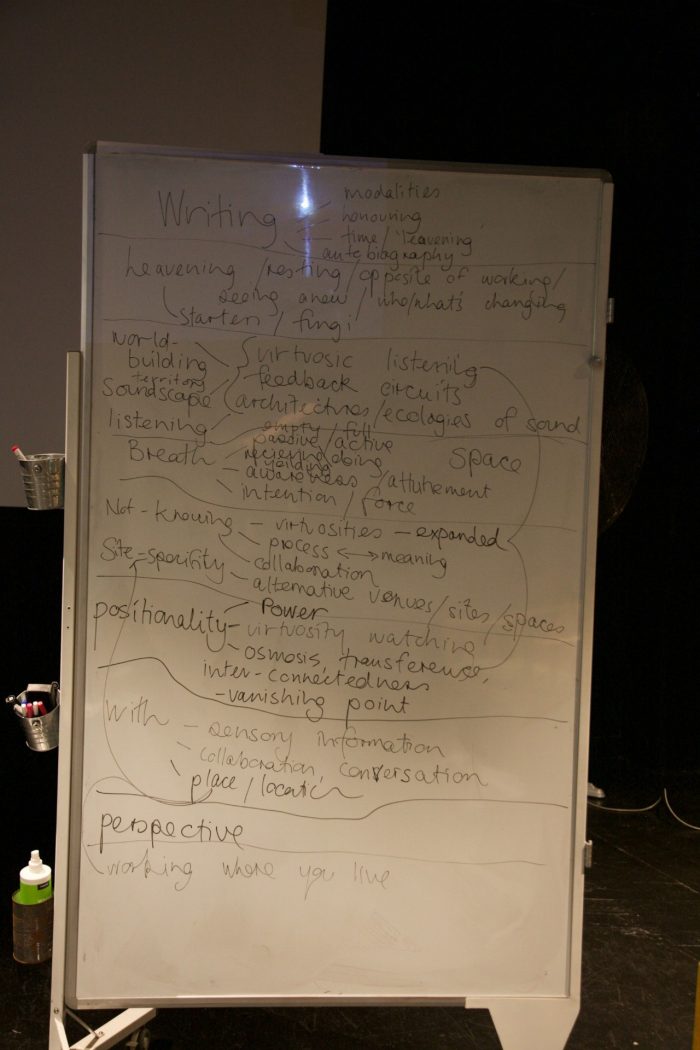 modalities
Writing
honouring
time/'leavening'
autobiography
Leavening /resting/opposite of working/
seeing anew / who/what's changing
starters / fungi
world-
building
virtuosic listening
territory
feedback circuits
soundscape
architectures/ecologies of sound
listening
empty/full
passive/active
Breath
recieving/doing
yielding
Space
awareness/attunement
intention/force
Not-knowing
virtuosities - expanded
process ↔ meaning
collaboration
Site-specifity
alternative venues/sites/spaces
Power
positionality
virtuosity watching
osmosis, transference,
inter-connectedness
-vanishing point
With
- sensory information
- collaboration, conversation
place/location
perspective
working where you live